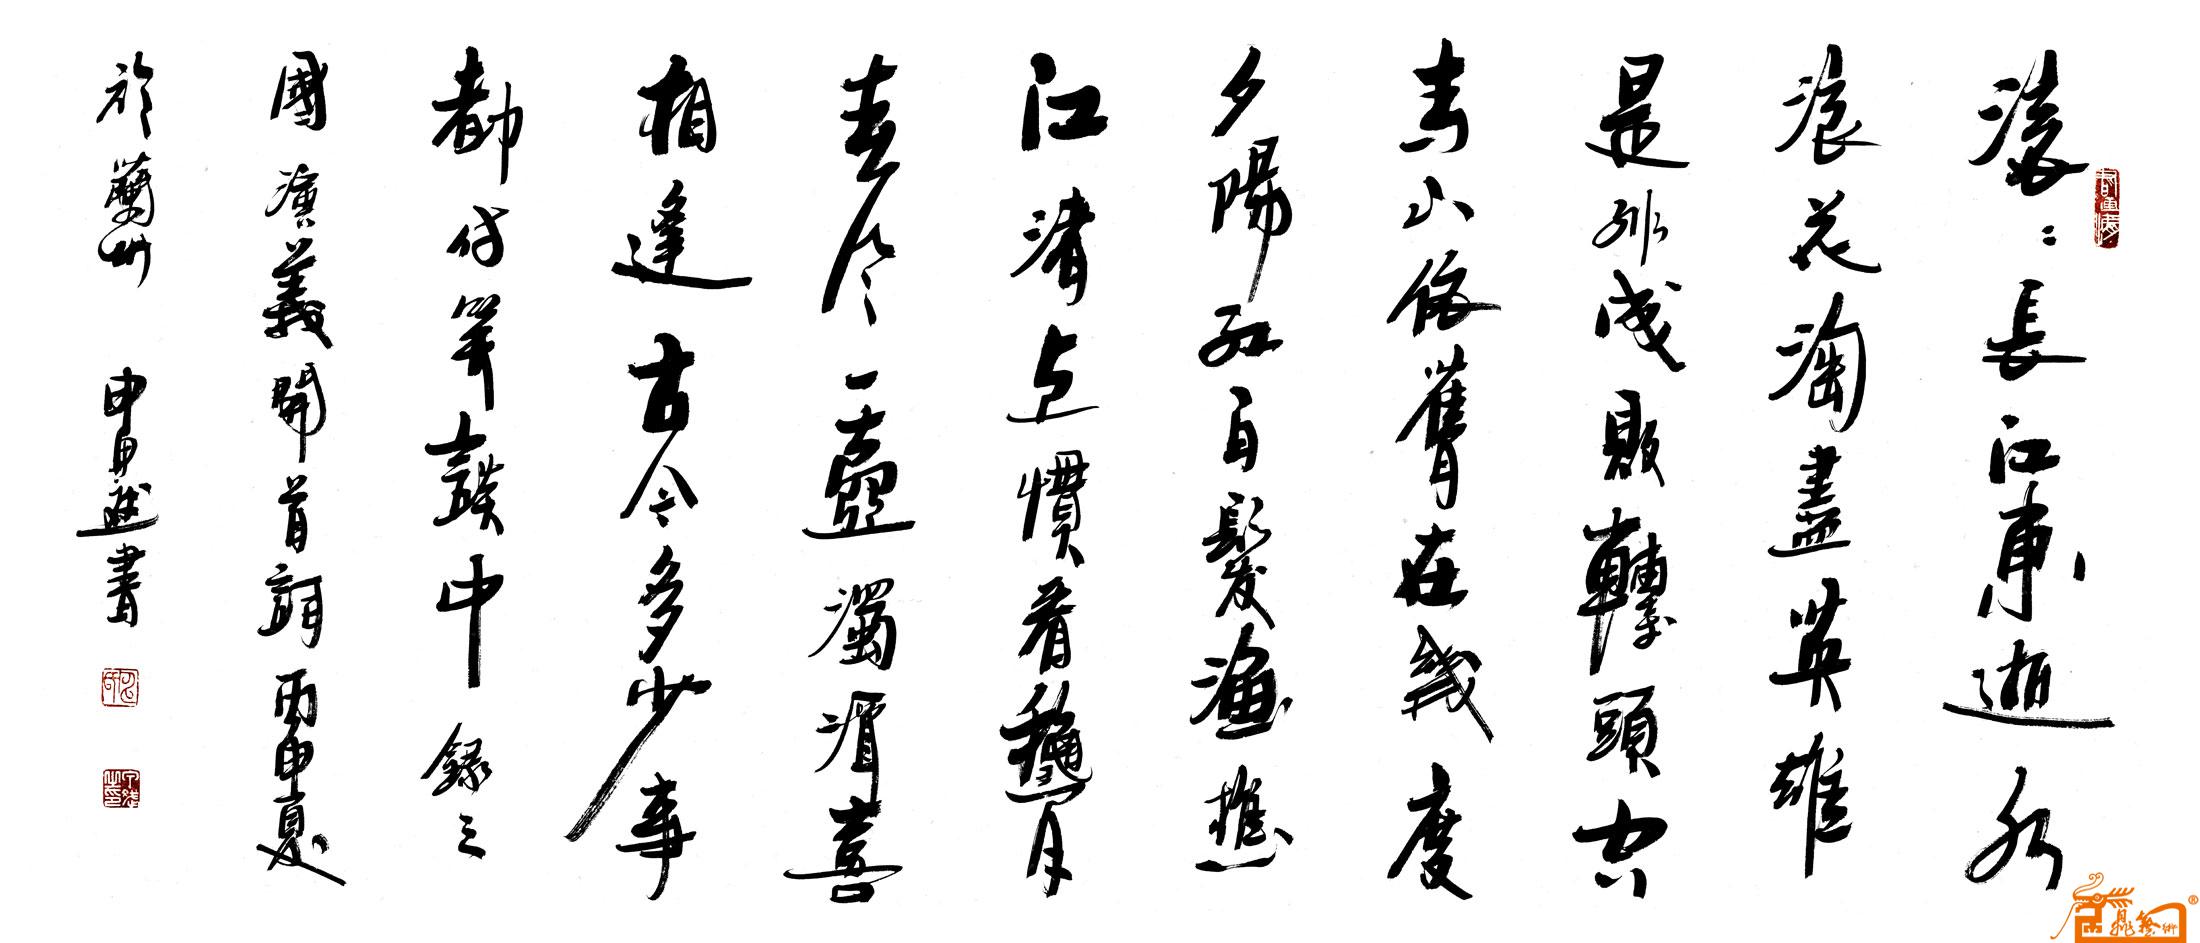 滚〻長江東逝水
浪花淘盡英雄
是非成敗轉頭空
青山依舊在幾度
夕陽紅白髮漁樵
江渚上慣看秋月
春風一壺濁酒喜
相逢古今多少事
都付笑談中錄三
國演義開首詞丙申夏
於蘭州 申國進書